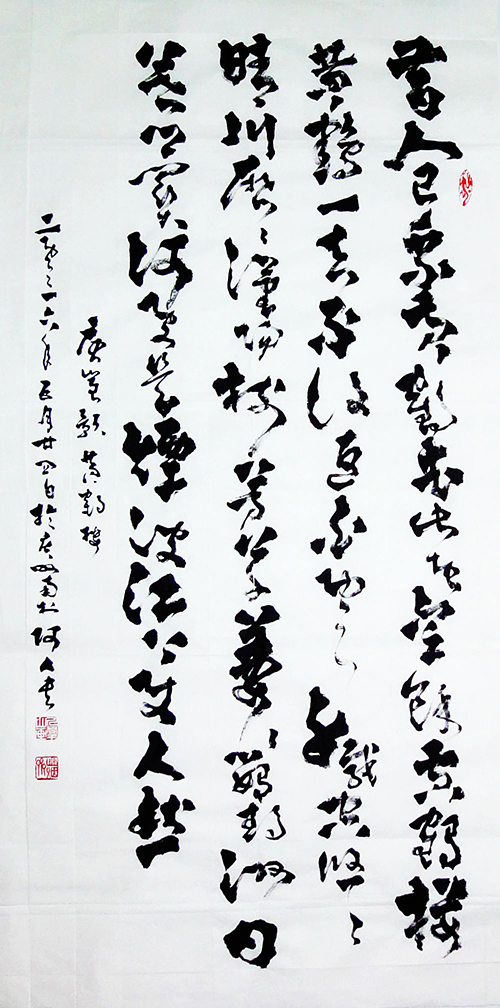 昔人已乘黄鶴去此地空餘黄鶴樓
黄鶴一去不復返白雲千載空悠〻
晴川歷〻漢陽樹芳草萋〻鸚鵡洲日
暮鄉關何處是煙波江上使人愁
唐崔顥黄鶴樓
二零一六年五月廿四日於广州南